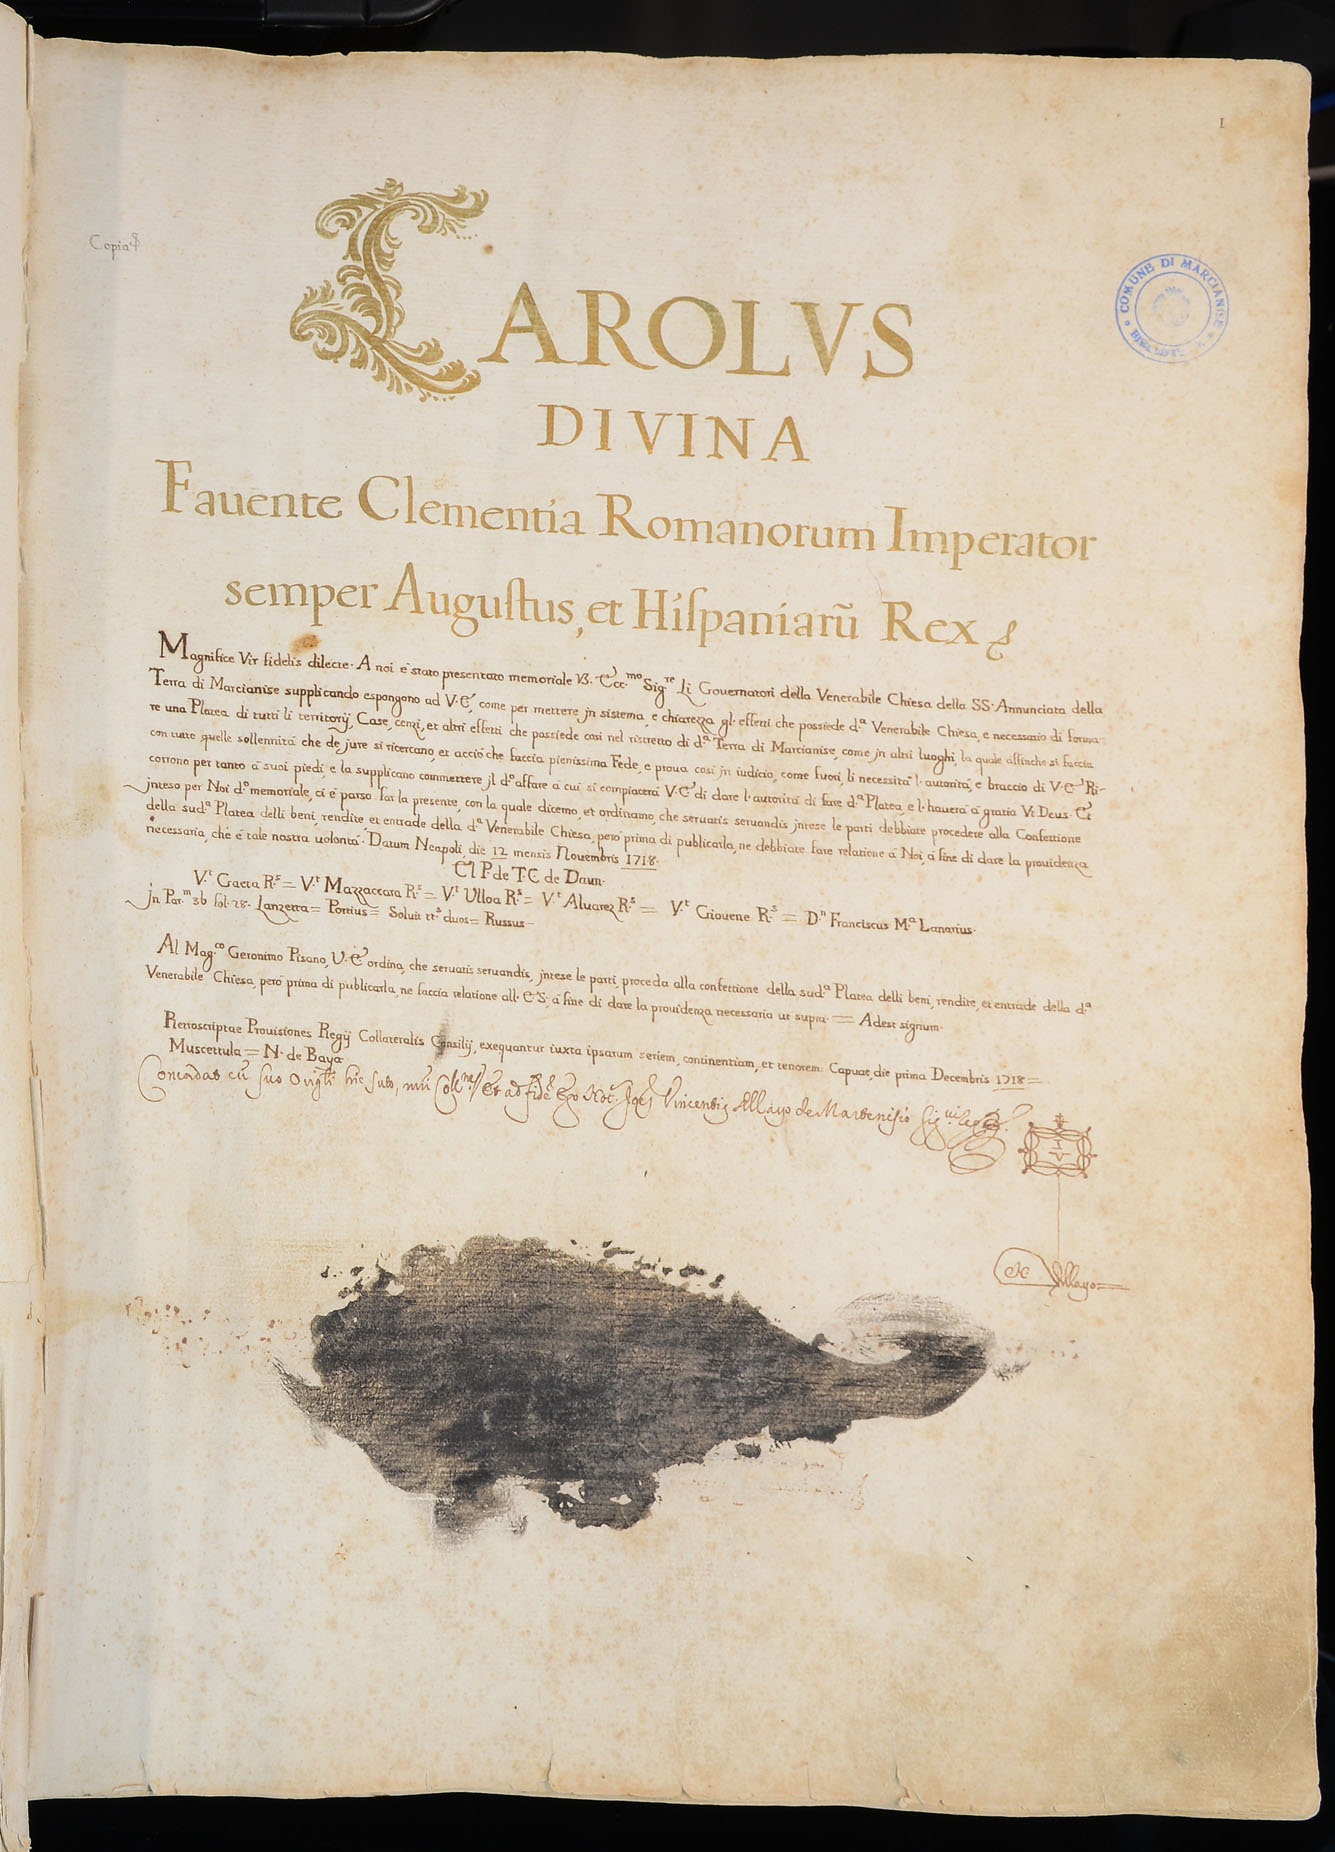 1
Copia
COMUNE DI MARCIANISE
CAROLVS
DIVINA
Fauente Clementia Romanorum Imperator
semper Augustus, et Hispaniarũ Rex
Magnifice Vir fidelis dilecte. A noi è stato presentato memoriale V3. Ecc.mo Sig.re Li Gouernatori della Venerabile Chiesa della SS. Annunciata della
Terra di Marcianise supplicando espongono ad V.E, come per mettere jn sistema, e chiarezza gl. effetti che possiede d.a Venerabile Chiesa, e necessario di forma-
re una Platea di tutti li territorij, Case, cenzi, et altri effetti che possiede così nel ristretto di d.a Terra di Marcianise, come jn altri luoghi, la quale affinche si faccia
con tutte quelle sollennità che de jure si ricercano, et acciò che faccia pienissima Fede, e proua così jn iudicio, come fuori, li necessita l'autorità, e braccio di V.E Ri-
corrono per tanto à suoi piedi, e la supplicano commettere jl d.o affare à cui si compiacerà V.E di dare l'autorità di fare d.a Platea, e l'hauerà à gratia Vt Deus. Et
jnteso per Noi d.o memoriale, ci è parso far la presente, con la quale dicemo, et ordinamo, che seruatis seruandis jntese le parti debbiate procedere alla Confettione
della sud.a Platea delli beni, rendite, et entrade della d.a Venerabile Chiesa, però prima di publicarla, ne debbiate fare relatione à Noi, à fine di dare la prouidenza
necessaria, chè è tale nostra uolontà. Datum Neapoli, die 12 mensis Nouembris 1718.
El P. de T.C de Daun.
V.t Gaeta R.s = V.t Mazzaccara R.s = V.t Ulloa R.s = V.t Aluarez R.s = V.t Giouene R.s = D.n Franciscus M.a Lanarius.
jn Par.m 3b fol. 28. Lanzetta = Portius = Soluit tt.s duos = Russus =
Al Mag.co Geronimo Pisano, V.E ordina, che seruatis seruandis, jntese le parti, proceda alla confettione della sud.a Platea delli beni, rendite, et entrade della d.a
Venerabile Chiesa, però prima di publicarla, ne faccia relatione all. E.S, à fine di dare la prouidenza necessaria ut supra. = Adest signum.
Retroscriptae Prouisiones Regij Collateralis Consilij, exequantur iuxta ipsarum seriem, continentiam, et tenorem. Capuae, die prima Decembris 1718 =
Muscettula = N. de Baya
Concordat cũ suo orig.li hic suto, Et ad fidẽ Ego Not. Vincentius Allayo de Martenisio